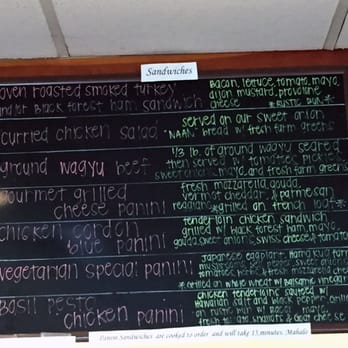 Sandwiches
oven roasted smoked turkey
and/or Black forest ham sandwich
Bacon, lettuce, tomato, mayo,
dijon mustard, provolone
cheese *RUSTIC BUN*
curried chicken salad
served on our sweet onion
"NAAN" bread w/ fresh farm greens
ground wagyu beef
1/3 lb. of ground wagyu seared
then served w/ tomatoes, pickles
sweet onion, mayo, and fresh farm greens
gourmet grilled
cheese panini
fresh mozzarella, gouda,
vermont cheddar, & parmesan
reggiano *grilled on french loaf*
chicken cordon
blue panini
tenderloin chicken sandwich
grilled w/ black forest ham, mayo,
gouda, sweet onion, swiss cheese & tomato
vegetarian special panini
Japanese eggplant, Hamakua
tomato, herbs & fresh mozzarella cheese
*Grilled on whole wheat w/ Balsamic vinegar*
Basil pesto
chicken panini
chicken tenderloins, sauteed w/
hawaiian salt and black pepper grilled
on rustic bun w/ basil
fresh tomato, shallots & goat cheese
Panini Sandwiches are cooked to order and will take 15 minutes. Mahalo